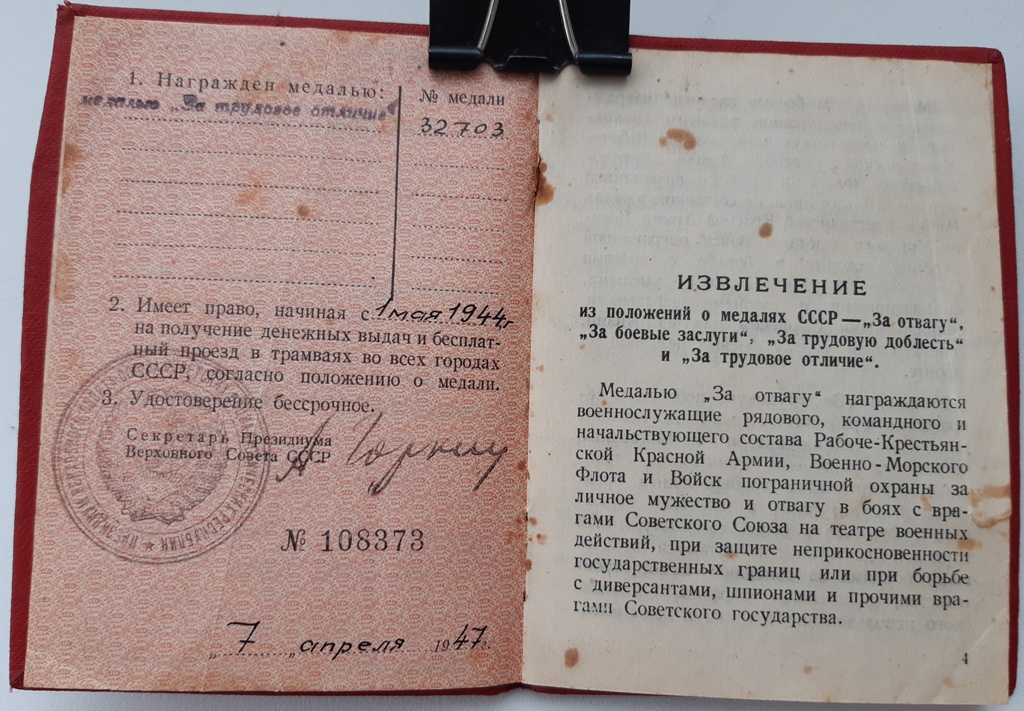 1. Награжден медалью:
медалью „За трудовое отличие“
№ медали
32703
2. Имеет право, начиная с 1 мая 1944 г
на получение денежных выдач и бесплат-
ный проезд в трамваях во всех городах
СССР, согласно положению о медали.
3. Удостоверение бессрочное.
Секретарь Президиума
Верховного Совета СССР
А Горкин
№ 108373
„ 7 „ апреля 1947 г.
ИЗВЛЕЧЕНИЕ
из положений о медалях СССР—„За отвагу“,
„За боевые заслуги“, „За трудовую доблесть“
и „За трудовое отличие“.
Медалью „За отвагу“ награждаются
военнослужащие рядового, командного и
начальствующего состава Рабоче-Крестьян-
ской Красной Армии, Военно-Морского
Флота и Войск пограничной охраны за
личное мужество и отвагу в боях с вра-
гами Советского Союза на театре военных
действий, при защите неприкосновенности
государственных границ или при борьбе
с диверсантами, шпионами и прочими вра-
гами Советского государства.
4